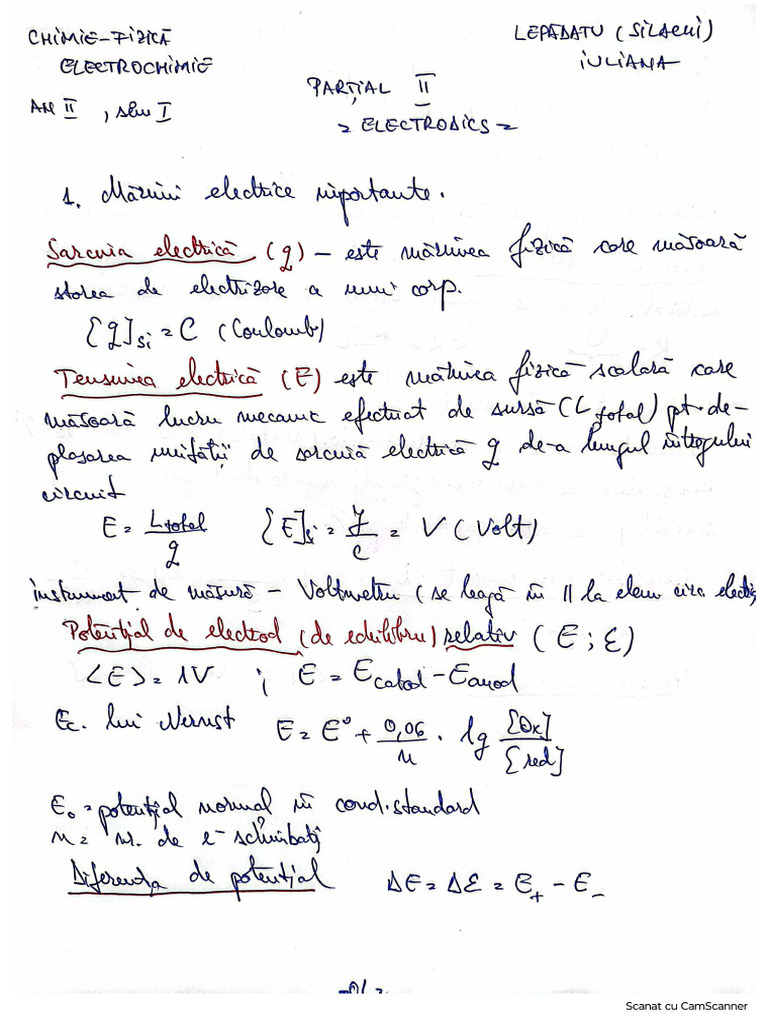 CHIMIE-FIZICĂ
LEPĂDATU (SILAGHI)
ELECTROCHIMIE
IULIANA
AN II, sem I
PARȚIAL II
= ELECTRODICS =
1. Mărimi electrice importante.
Sarcina electrică (q) - este mărimea fizică care măsoară
starea de electrizare a unui corp.
[q]SI = C (Coulomb)
Tensiunea electrică (E) este mărimea fizică scalară care
măsoară lucru mecanic efectuat de sursă (L total) pt. de-
plasarea unității de sarcină electrică q de-a lungul întregului
circuit
E = Ltotal/q [E]SI = J/C = V (Volt)
instrument de măsură - Voltmetru (se leagă în || la elem circ. electric
Potențial de electrod (de echilibru) relativ (E; ε)
<E> = 1V ; E = Ecatod - Eanod
Ec. lui Nernst E = E° + 0,06/n · lg [Ox]/[red]
E₀ = potențial normal în cond. standard
n = nr. de e⁻ schimbați
Diferența de potențial ΔE = Δε = E₊ - E₋
Scanat cu CamScanner